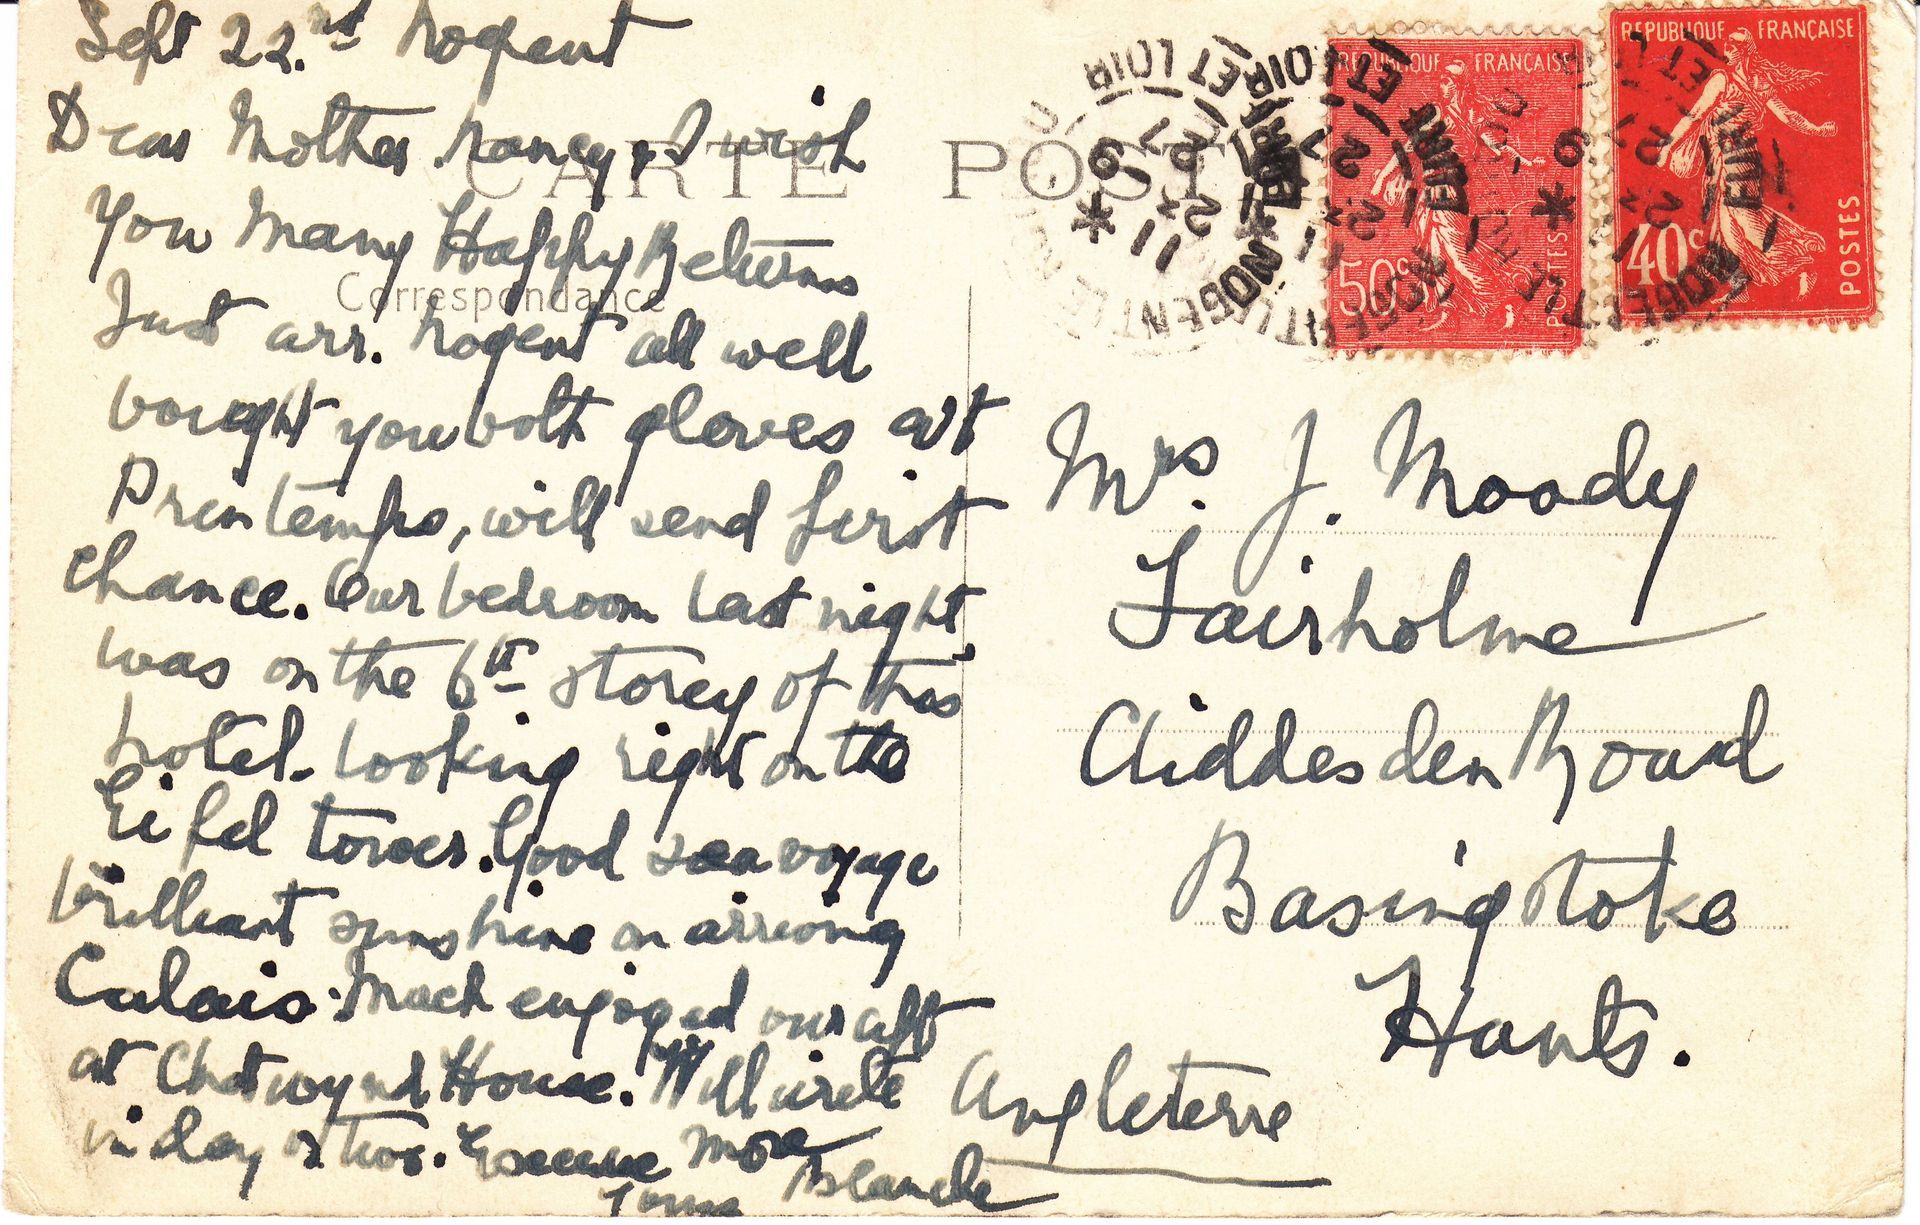 Sept 22.nd Nogent
Dear Mother. Nancy & I wish
You Many Happy Returns
Just arr. Nogent all well
bought you both gloves at
Printemps, will send first
chance. Our bedroom last night
was on the 6th storey of this
hotel. Looking right on the
Eifel tower. Good sea voyage
brilliant sunshine on arriving
Calais. Much enjoyed our aft
at Chetwynd House. Will write
in day or two. Excuse more
Yours Blanche
CARTE POST
Correspondance
REPUBLIQUE FRANÇAISE
50c
POSTES
REPUBLIQUE FRANÇAISE
40c
POSTES
NOGENT LE
EURE ET LOIR
11
22
9
27
Mrs. J. Moody
Fairholme
Cliddesden Road
Basingstoke
Hants.
Angleterre